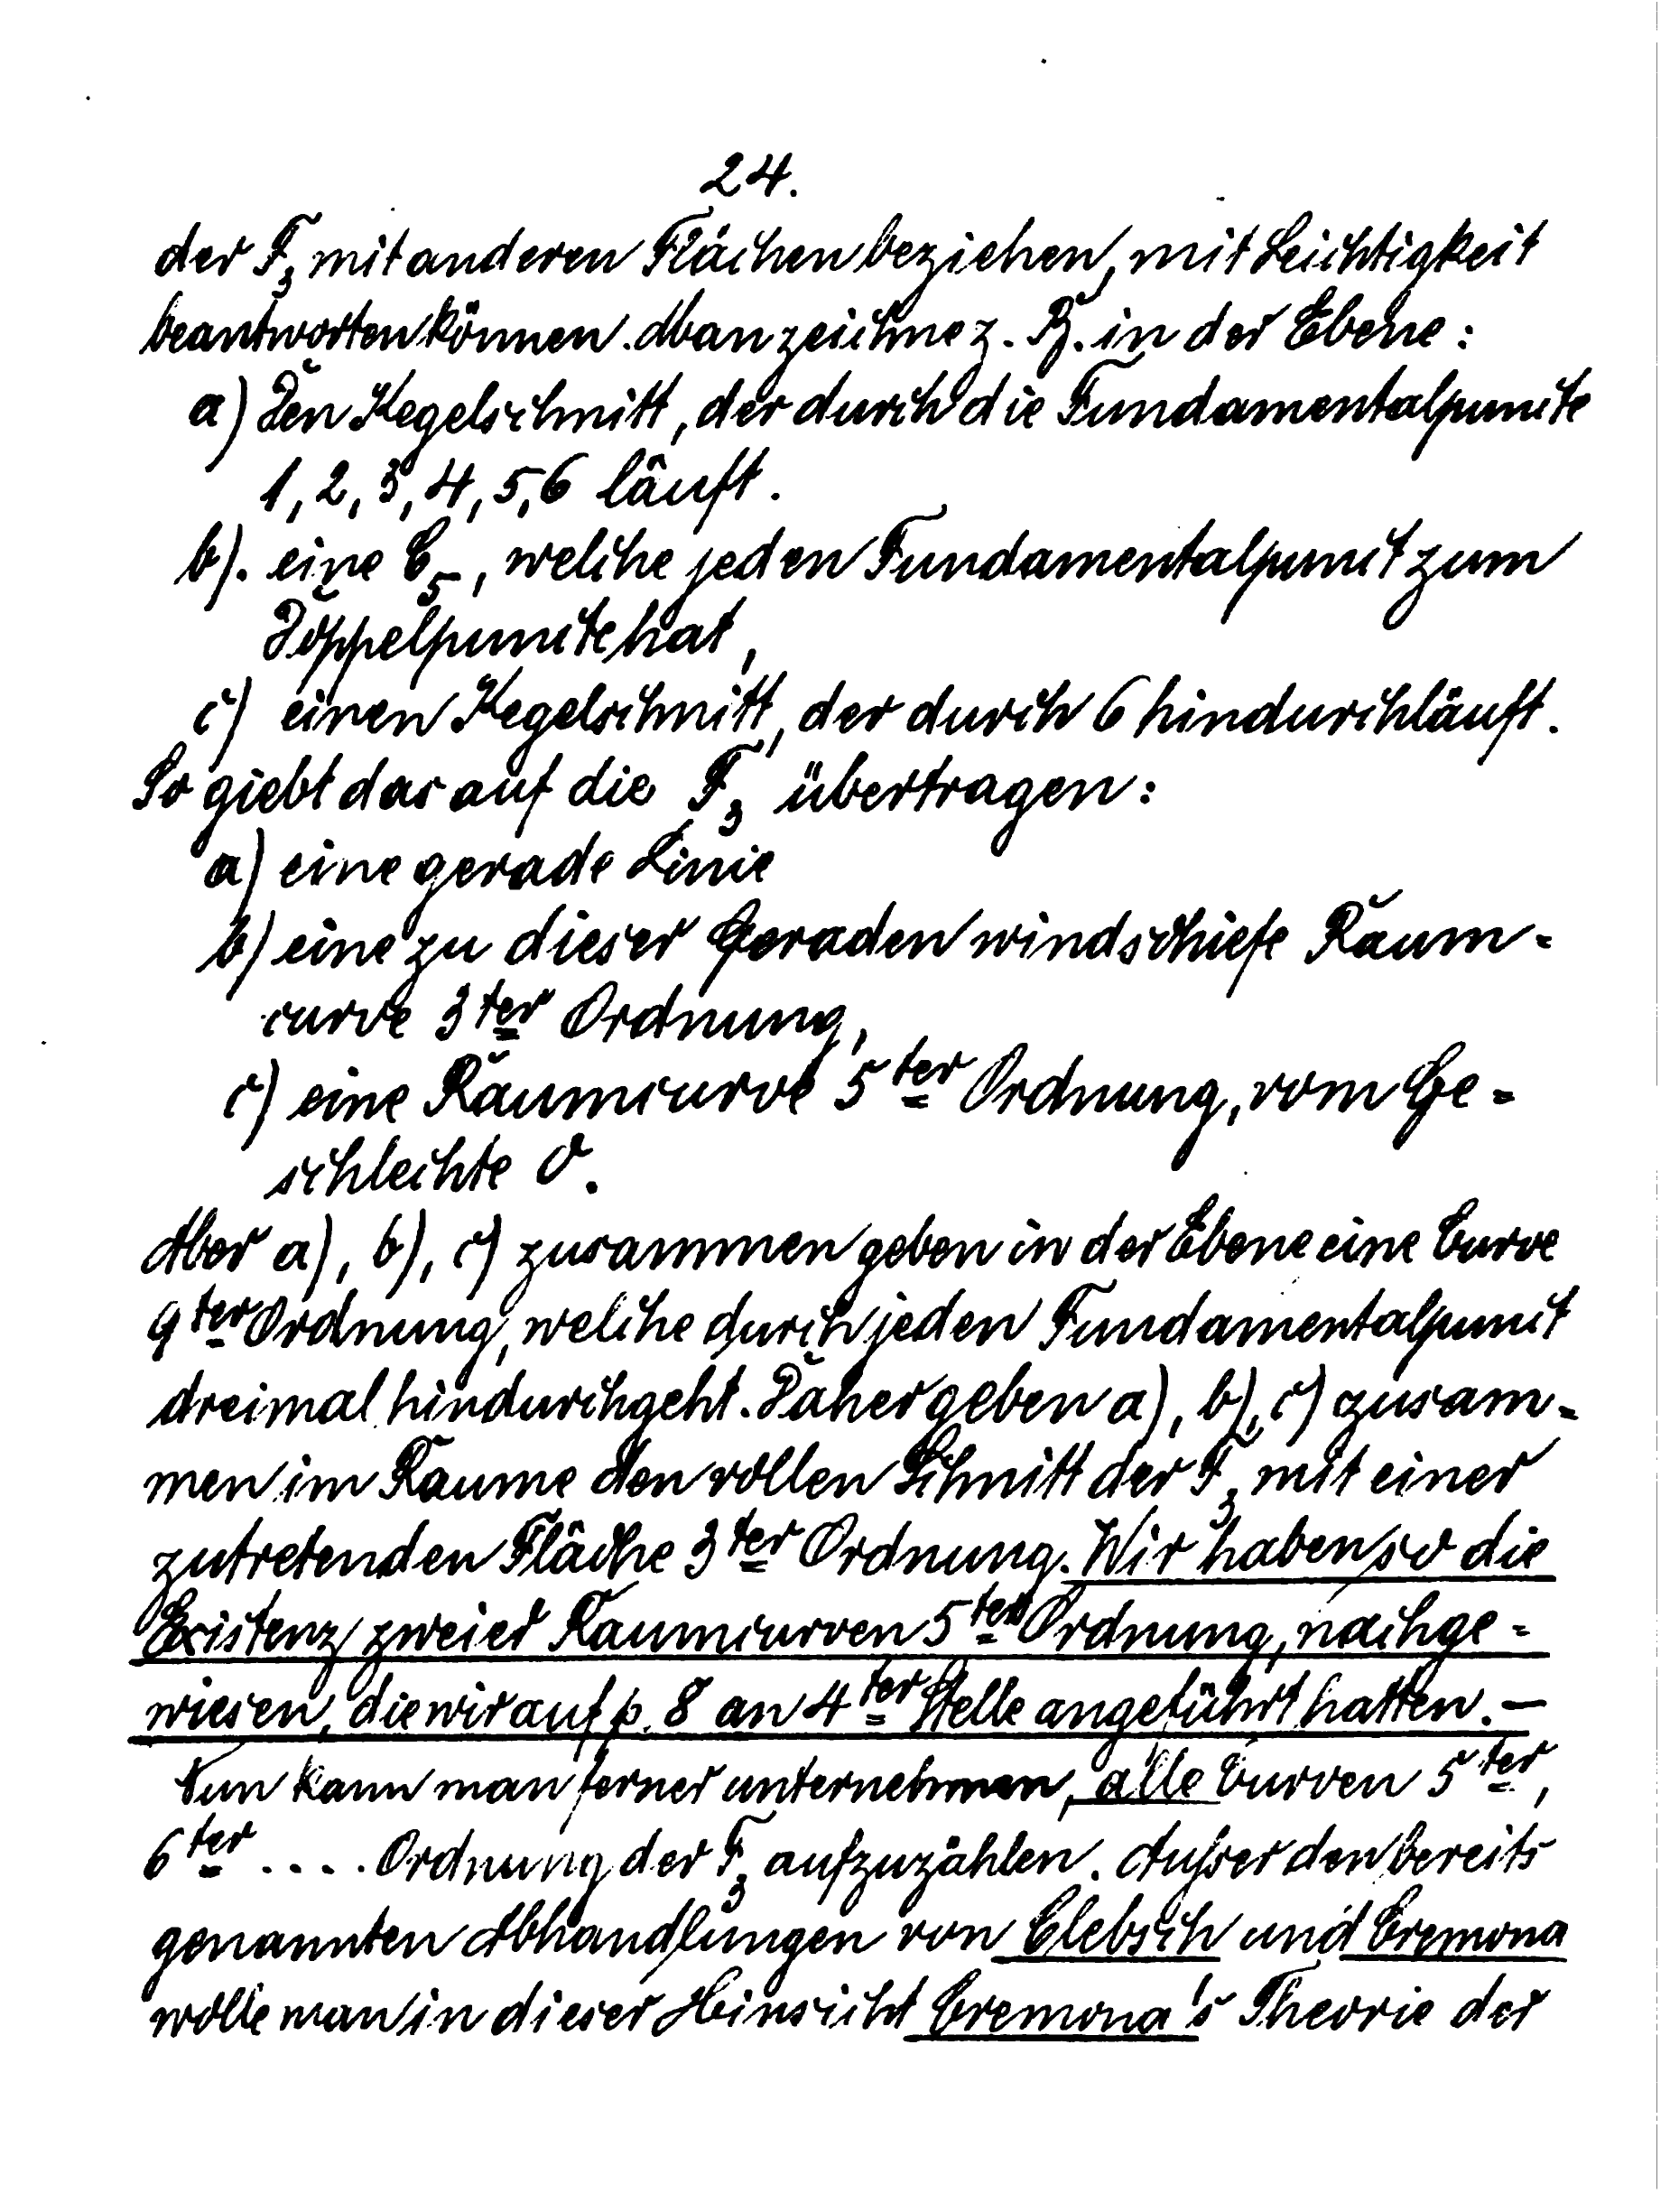 24.
der F₃ mit anderen Flächen beziehen, mit Leichtigkeit
beantworten können. Man zeichne z. B. in der Ebene:
a) Den Kegelschnitt, der durch die Fundamentalpuncte
1, 2, 3, 4, 5, 6 läuft.
b). eine C₅, welche jeden Fundamentalpunct zum
Doppelpuncte hat,
c) einen Kegelschnitt, der durch 6 hindurchläuft.
So giebt das auf die F₃ übertragen:
a) eine gerade Linie
b) eine zu dieser Geraden windschiefe Raum-
curve 3ter Ordnung,
c) eine Raumcurve 5ter Ordnung, vom Ge-
schlechte 0.
Aber a), b), c) zusammen geben in der Ebene eine Curve
9ter Ordnung, welche durch jeden Fundamentalpunct
dreimal hindurchgeht. Daher geben a), b), c) zusam-
men im Raume den vollen Schnitt der F₃ mit einer
zutretenden Fläche 3ter Ordnung. Wir haben so die
Existenz zweier Raumcurven 5ter Ordnung, nachge-
wiesen, die wir auf p. 8 an 4ter Stelle angeführt hatten. –
Nun kann man ferner unternehmen, alle Curven 5ter,
6ter .... Ordnung der F₃ aufzuzählen. Außer den bereits
genannten Abhandlungen von Clebsch und Cremona
wolle man in dieser Hinsicht Cremona's Theorie der